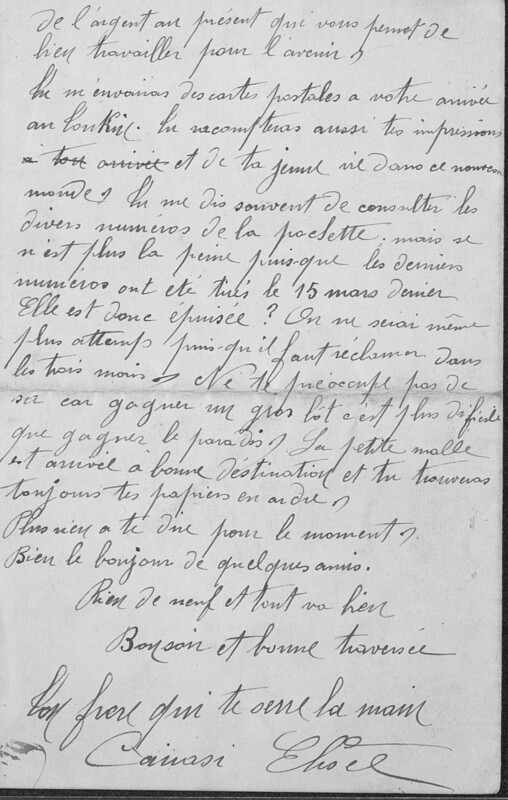 de l'argent au présent qui vous permet de
bien travailler pour l'avenir,
Tu m'enverras des cartes postales a votre arrivée
au Tonkin. Tu racompteras aussi tes impressions
a ton arrivée et de ta jeune vie dans ce nouveau
monde, Tu me dis souvent de consulter les
divers numéros de la pochette, mais se
n'est plus la peine puis-que les derniers
numéros ont été tirés le 15 mars dernier
Elle est donc épuisée? On ne serai même
plus attemps puis-qu'il faut réclamer dans
les trois mois, Ne te préoccupe pas de
sa car gagner un gros lôt c'est plus dificile
que gagner le paradis, La petite malle
est arrivée à bonne déstination et tu trouveras
toujours tes papiers en ordre,
Plus rien a te dire pour le moment,
Bien le bonjour de quelques amis.
Rien de neuf et tout va bien
Bonsoir et bonne traversée
Ton frere qui te serre la main